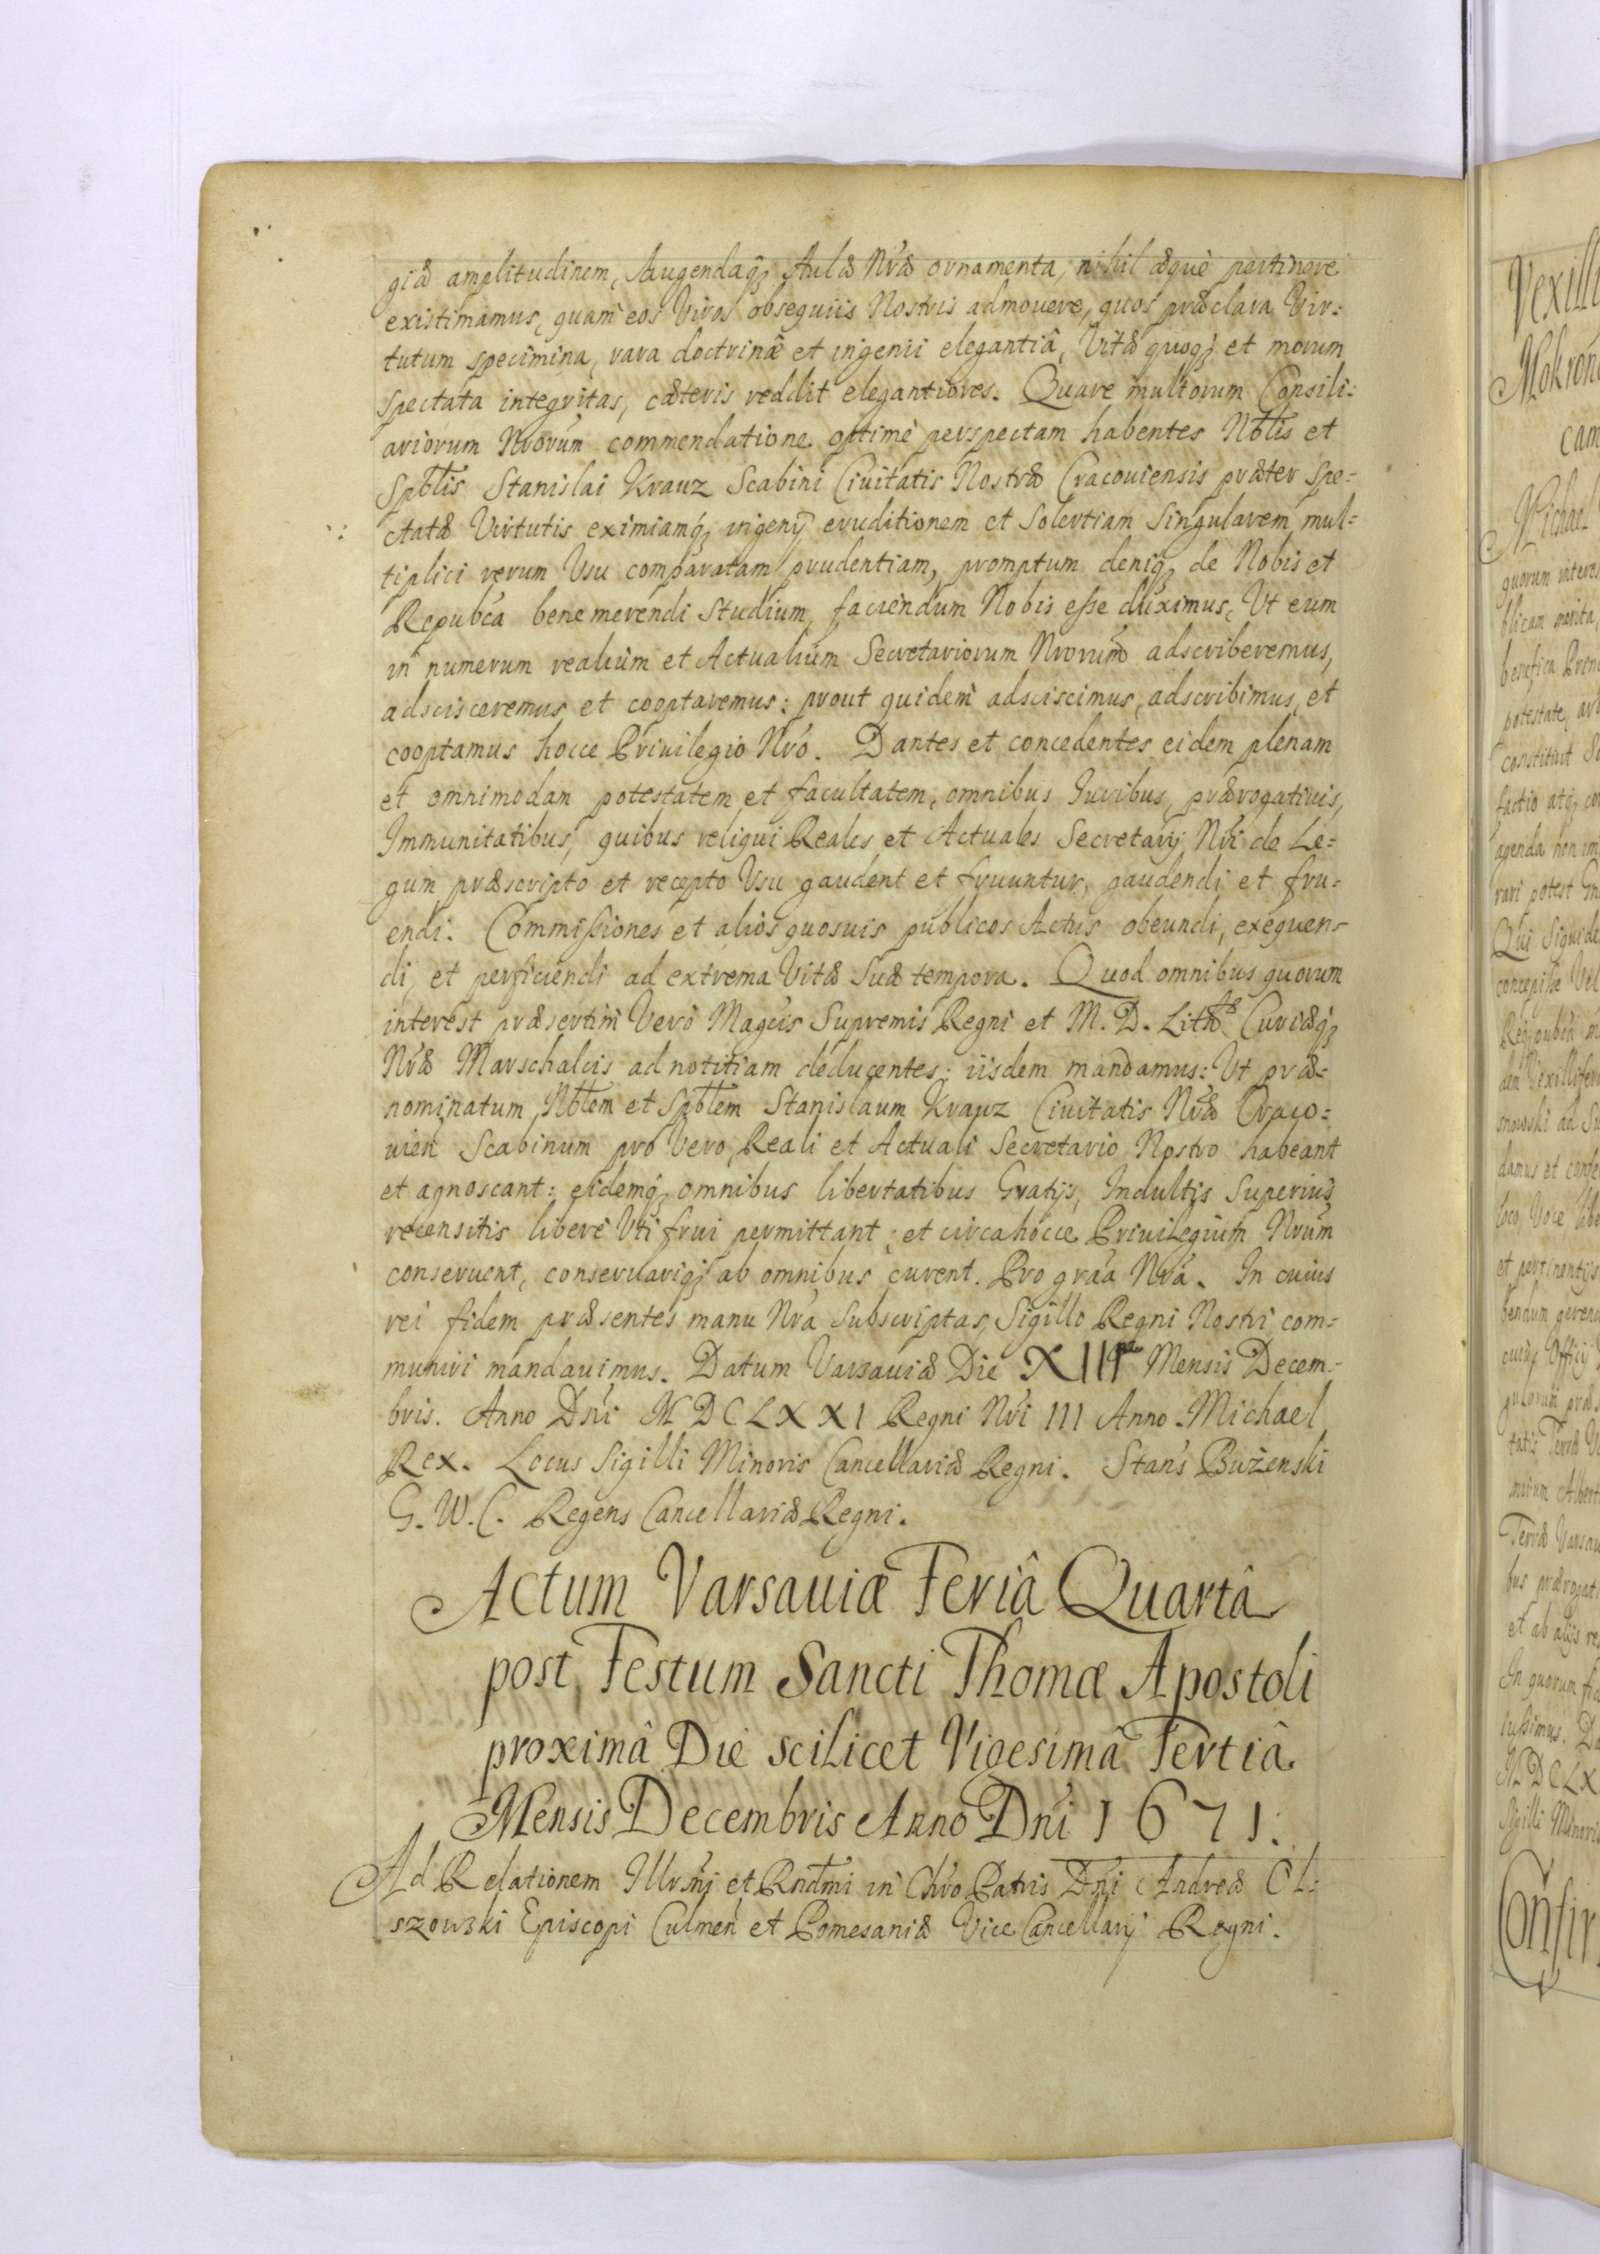 giæ amplitudinem, Augendaq; Aulæ Nræ ornamenta, nihil æquè pertinere
existimamus, quam eos Viros obsequiis Nostris admovere, quos præclara Vir=
tutum specimina, rara doctrinæ et ingenii elegantiâ, Vitæ quoq; et morum
spectata integritas, cæteris reddit elegantiores. Quare multorum Consili=
ariorum Nrorum commendatione optimè perspectam habentes Nblis et
Spblis Stanislai Krauz Scabini Ciuitatis Nostræ Cracouiensis præter spe=
ctatæ Virtutis eximiamq; ingenij eruditionem et Solertiam Singularem, mul=
tiplici rerum Vsu comparatam prudentiam, promptum deniq; de Nobis et
Repubca bene merendi Studium, faciendum Nobis esse duximus, Vt eum
in numerum realium et Actualium Secretariorum Nrorum adscriberemus,
adscisceremus et cooptaremus: prout quidem adsciscimus, adscribimus, et
cooptamus hocce Priuilegio Nro. Dantes et concedentes eidem plenam
et omnimodam potestatem et facultatem, omnibus Iuribus, prærogatiuis,
Immunitatibus, quibus reliqui Reales et Actuales Secretarij Nri de Le=
gum præscripto et recepto Vsu gaudent et fruuntur, gaudendi et fru=
endi. Commissiones et alios quosuis publicos Actus obeundi, exequen=
di, et perficiendi ad extrema Vitæ Suæ tempora. Quod omnibus quorum
interest præsertim Verò Magcis Supremis Regni et M. D. Lithæ Curiæq;
Nræ Marschalcis ad notitiam deducentes; iisdem mandamus: Vt præ=
nominatum Nblem et Spblem Stanislaum Krauz Ciuitatis Nræ Craco=
uien Scabinum pro Vero, Reali et Actuali Secretario Nostro habeant
et agnoscant: eidemq; omnibus libertatibus Gratijs, Indultis Superius
recensitis liberè Vti frui permittant; et circa hocce Priuilegium Nrum
conseruent, conseruariq; ab omnibus curent. Pro graa Nra. In cuius
rei fidem præsentes manu Nra Subscriptas, Sigillo Regni Nostri com=
muniri mandauimus. Datum Varsauiæ Die XIII Mensis Decem=
bris. Anno Dni M D C L X X I Regni Nri III Anno. Michael
Rex. Locus Sigilli Minoris Cancellariæ Regni. Stans Bużenski
G. W. C. Regens Cancellariæ Regni.
Actum Varsauiæ Feriâ Quartâ
post Festum Sancti Thomæ Apostoli
proximâ Die scilicet Vigesimâ Tertiâ
Mensis Decembris Anno Dni 1671.
Ad Relationem Illrsmi et Rndmi in Chro Patris Dni Andreæ Ol=
szowski Episcopi Culmen et Pomesaniæ Vice Cancellarij Regni.
Mokron
cam
Michael
quorum interes